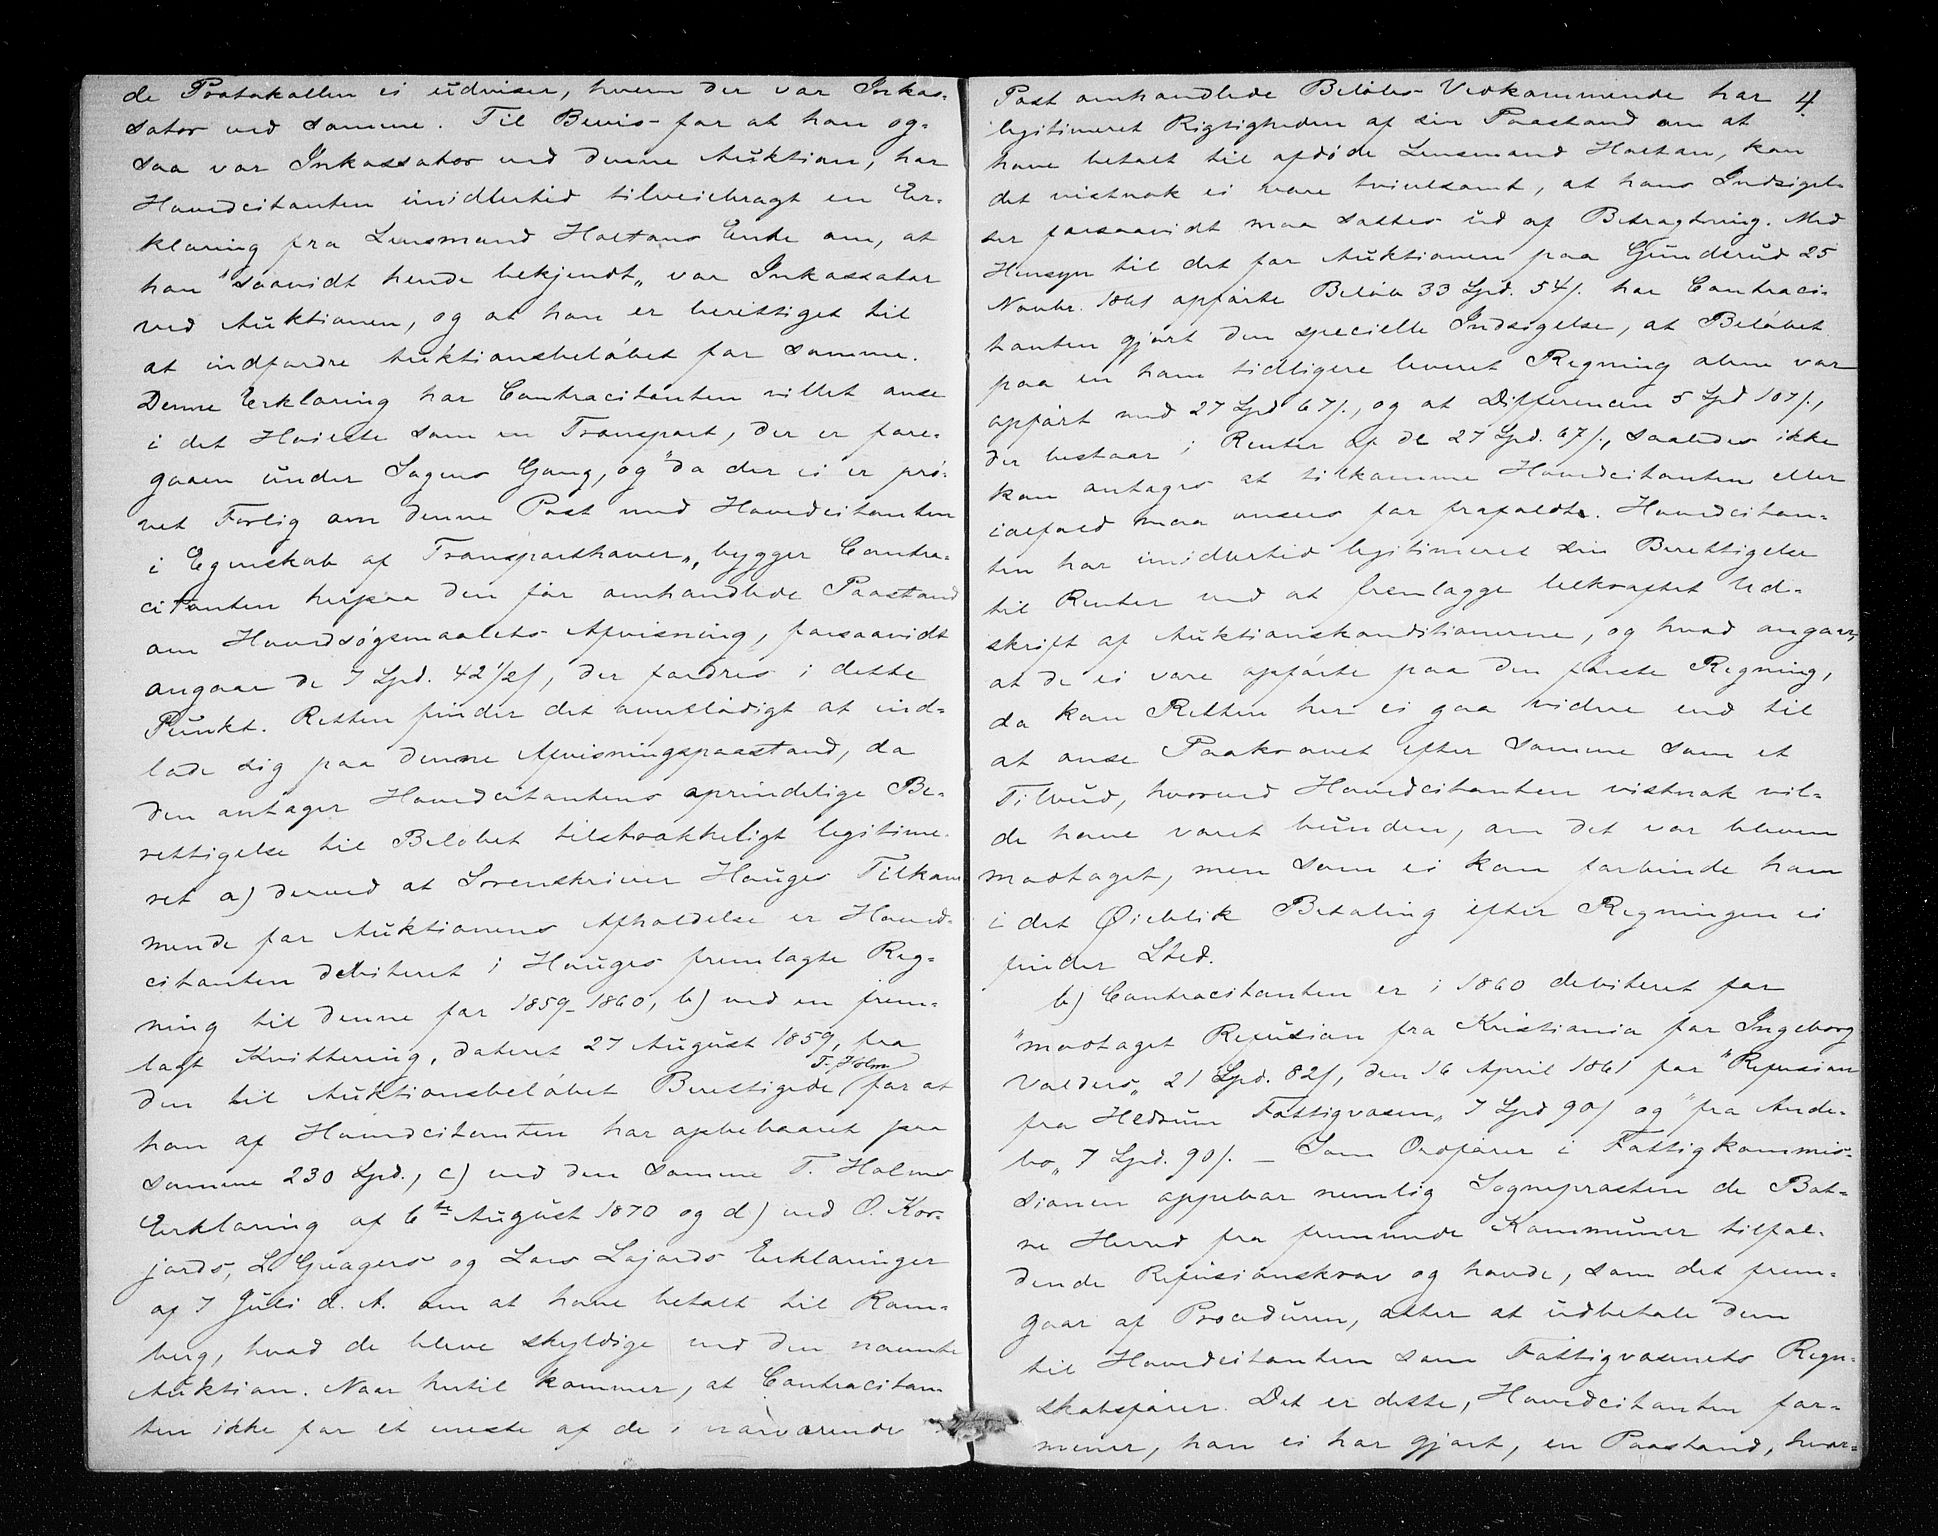 de Protokollen ei udviser, hvem der var Inkas-
sator ved samme. Til Bevis for at han og-
saa var Inkassator ved denne Auktion, har
Hovedcitanten imidlertid tilveiebragt en Er-
klæring fra Lensmand Holtans Enke om, at
han "saavidt hende bekjendt„ var Inkassator
ved Auktionen, og at han er berettiget til
at indfordre Auktionsbeløbet for samme.
Denne Erklæring har Contracitanten villet anse
i det Høieste som en Transport, der er fore-
gaaen under Sagens Gang, og "da der ei er prø-
vet Forlig om denne Post med Hovedcitanten
i Egenskab af Transporthaver„, bygger Contra-
citanten herpaa den før omhandlede Paastand
om Hovedsøgsmaalets Afvisning, forsaavidt
angaar de 7 Spd. 42 1/2 s, der fordres i dette
Punkt. Retten finder det ufornødigt at ind-
lade sig paa denne Afvisningspaastand, da
den antager Hovedcitantens oprindelige Be-
rettigelse til Beløbet tilstrækkeligt legitime-
ret a) derved at Sorenskriver Hauges Tilkom
mende for Auktionens Afholdelse er Hoved-
citanten debiteret i Hauges fremlagte Reg-
ning til denne for 1859-1860, b) ved en frem-
lagt Kvittering, dateret 27 August 1859, fra
den til Auktionsbeløbet Berettigede (T. Holm) for at
han af Hovedcitanten har opbebaaret paa
samme 230 Spd., c) ved den samme T. Holms
Erklæring af 6te August 1870 og d) ved O. Kor-
jords, L. Gvagers og Lars Lajords Erklæringer
af 7 Juli d. A. om at have betalt til Ram-
berg, hvad de bleve skyldige ved den nævnte
Auktion. Naar hertil kommer, at Contracitan
ten ikke for et eneste af de i nærværende
4.
Post omhandlede Beløbs Vedkommende har
legitimeret Rigtigheden af sin Paastand om at
have betalt til afdøde Lensmand Holtan, kan
det vistnok ei være tvivlsomt, at hans Indsigel-
ser forsaavidt maa sættes ud af Betragtning. Med
Hensyn til det for Auktionen paa Gunderud 25
Novbr. 1861 opførte Beløb 33 Spd. 54 s. har Contraci-
tanten gjort den specielle Indsigelse, at Beløbet
paa en ham tidligere leveret Regning alene var
opført med 27 Spd 67 s., og at Differencen 5 Spd 107 s.,
der bestaar i Renter af de 27 Spd. 67 s., saaledes ikke
kan antages at tilkomme Hovedcitanten eller
ialfald maa ansees for frafaldte. Hovedcitan-
ten har imidlertid legitimeret sin Berettigelse
til Renter ved at fremlægge bekræftet Ud-
skrift af Auktionskonditionerne, og hvad angaar,
at de ei vare opførte paa den første Regning,
da kan Retten her ei gaa videre end til
at anse Paakravet efter samme som et
Tilbud, hvorved Hovedcitanten vistnok vil-
de have været bunden, om det var bleven
modtaget, men som ei kan forbinde ham
i det Øieblik Betaling efter Regningen ei
finder Sted.
b) Contracitanten er i 1860 debiteret for
"modtaget Refusion fra Kristiania for Ingeborg
Valders„ 21 Spd. 82 s, den 16 April 1861 for "Refusion
fra Hedrum Fattigvæsen„ 7 Spd 90 s og "fra Ande-
bo„ 7 Spd. 90 s. – Som Ordfører i Fattigkommis-
sionen oppebar nemlig Sognepræsten de Bot-
ne Herred fra fremmede Kommuner tilfal-
dende Refusionskrav og havde, som det frem-
gaar af Proceduren, atter at udbetale dem
til Hovedcitanten som Fattigvæsenets Regn-
skabsfører. Det er dette, Hovedcitanten for-
mener, han ei har gjort, en Paastand, hvor-